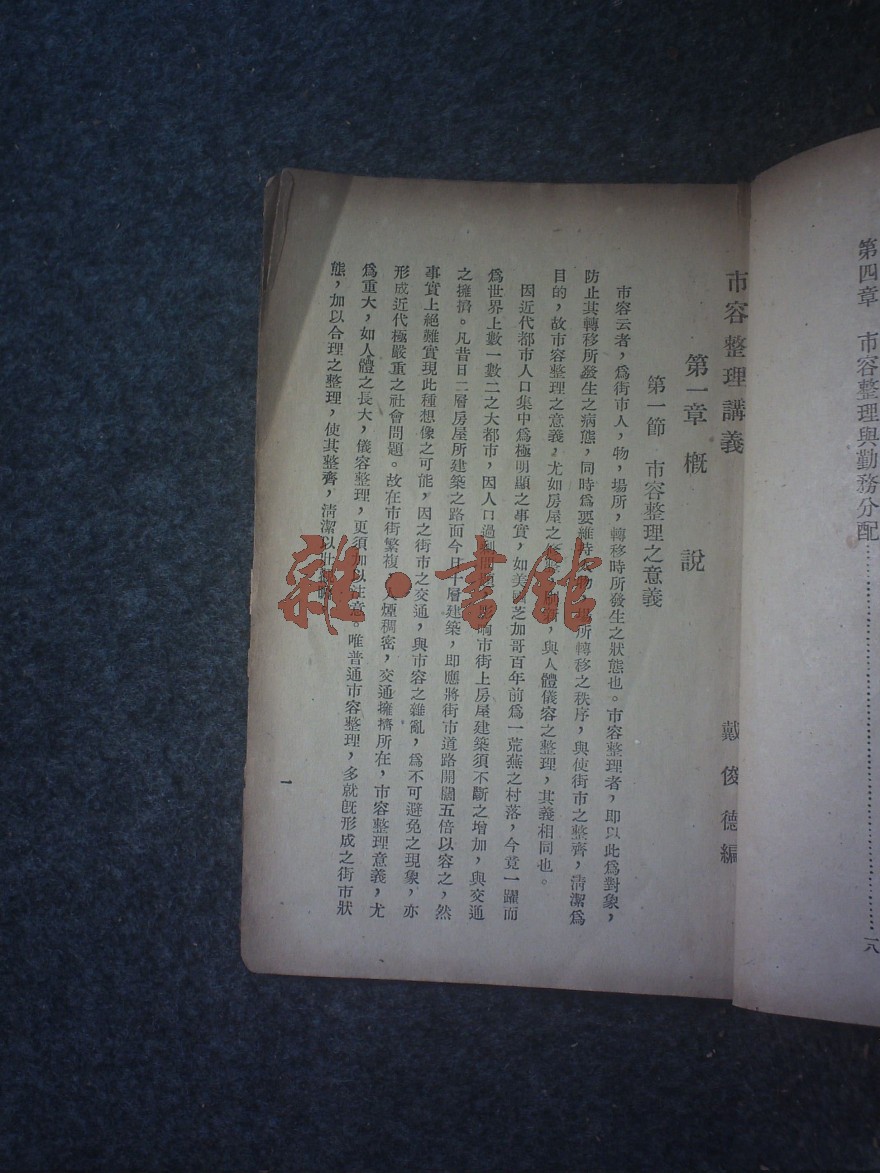 第四章 市容整理與勤務分配……………………一八
市容整理講義
戴俊德編
第一章 概說
第一節 市容整理之意義
市容云者，爲街市人，物，場所，轉移時所發生之狀態也。市容整理者，即以此爲對象，
防止其轉移所發生之病態，同時爲要維持人物 場所轉移之秩序，與使街市之整齊，清潔爲
目的，故市容整理之意義，尤如房屋之 ，與人體儀容之整理，其義相同也。
因近代都市人口集中爲極明顯之事實，如美國芝加哥百年前爲一荒蕪之村落，今竟一躍而
爲世界上數一數二之大都市，因人口過剩 市街上房屋建築須不斷之增加，與交通
之擁擠。凡昔日二層房屋所建築之路而今日十層建築，即應將街市道路開闢五倍以容之，然
事實上絕難實現此種想像之可能，因之街市之交通，與市容之雜亂，爲不可避免之現象，亦
形成近代極嚴重之社會問題。故在市街繁複 煙稠密，交通擁擠所在，市容整理意義，尤
爲重大，如人體之長大，儀容整理，更須加以注意。唯普通市容整理，多就旣形成之街市狀
態，加以合理之整理，使其整齊，清潔以壯
一
雜·書館